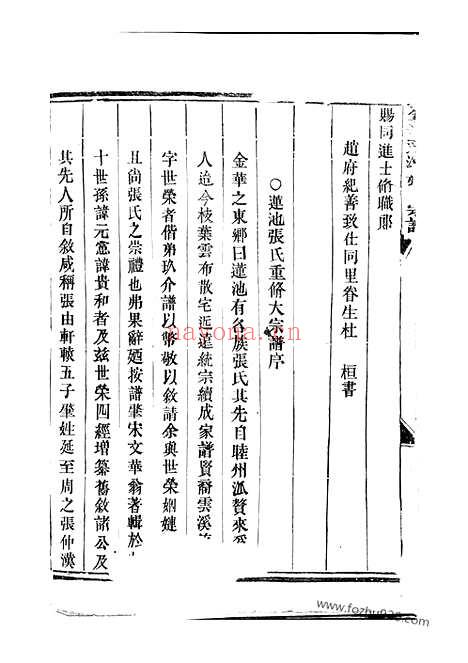 賜同進士脩職郎
趙府紀善致仕同里眷生杜 桓書
○蓮池張氏重脩大宗譜序
金華之東鄉曰蓮池有名族張氏其先自睦州派贅來爲
人迨今枝葉雲布散宅近遠統宗續成家譜賢裔雲溪
字世榮者偕弟玖介譜以弊敬以敘請余與世榮姻婕
丑尙張氏之崇禮也弗果辭廼按譜肇宋文華翁著輯於
十世孫諱元憲諱貴和者及茲世榮四經增纂舊敘諸公及
其先人所自敘咸稱張由軒轅五子肇姓延至周之張仲漢
nayona.cn
www.fozhu920.com